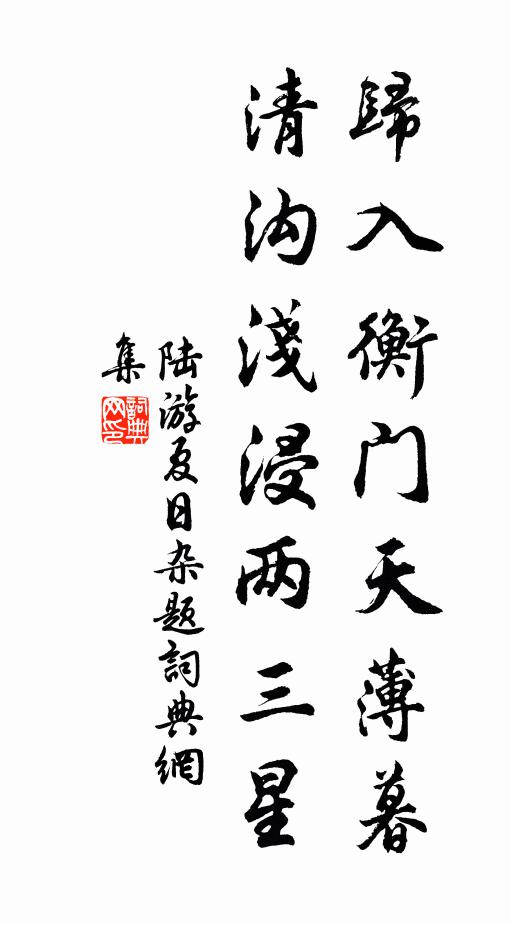 歸入衡门天薄暮
清沟淺浸两三星
陆游夏日杂题詞典網
集
詞典
网印